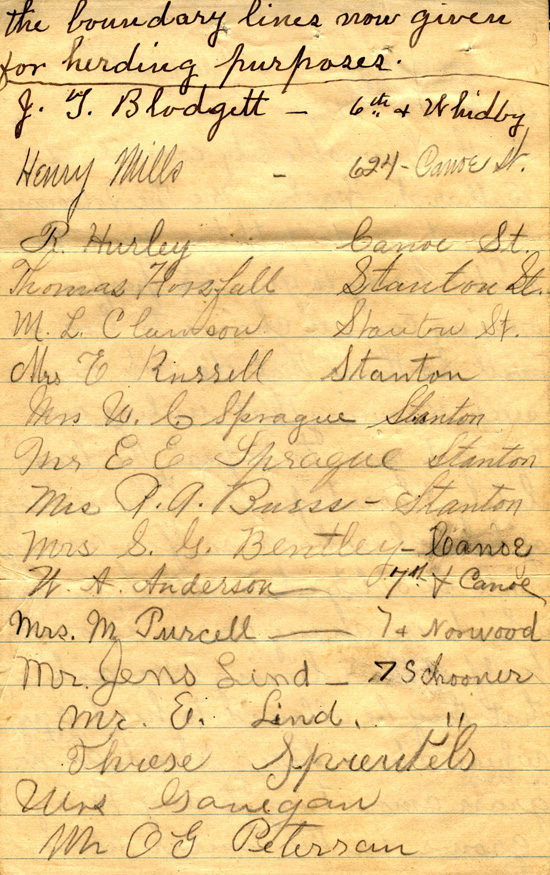 the boundary lines now given
for herding purposes.
J. T. Blodgett – 6th & Whidby
Henry Mills - 624 - Canoe St.
R. Hurley Canoe St.
Thomas Horsfall Stanton St.
M. L. Clawson - Stanton St.
Mrs E Russell Stanton
Mrs W. C Sprague Stanton
Mr E E Sprague Stanton
Mrs P. A. Burss - Stanton
Mrs S. G. Bentley - Canoe
W. A. Anderson 7th & Canoe
Mrs. M Purcell — 7 & Norwood
Mr. Jens Lind – 7 Schooner
Mr. E. Lind. "
Mrs Ganegan
Mr O G Peterson